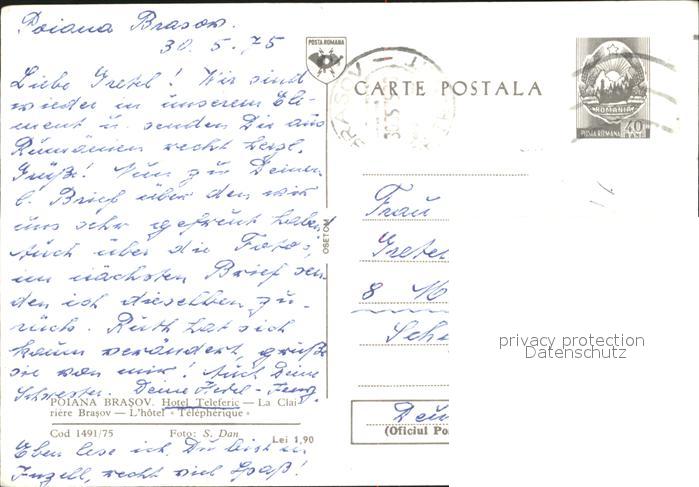 Poiana Brasov.
30.5.75
Liebe Gretel! Wir sind
wieder in unserem Ele-
ment u. senden Dir aus
Rumänien recht herzl.
Grüße! Nun zu Deinem
l. Brief über den wir
uns sehr gefreut haben!
Auch über die Fotos,
im nächsten Brief sen-
den ich dieselben zu-
rück. Ruth hat sich
kaum verändert, grüße
sie von mir! Auch Deine
Schwester. Deine
POIANA BRAŞOV. Hotel Teleferic — La Clai
rière Braşov — L'hôtel « Téléphérique »
Cod 1491/75 Foto: S. Dan
Lei 1,90
Eben lese ich, Du bist in
Inzell, recht viel Spaß!
OSETOM
POSTA ROMANA
CARTE POSTALA
BRASOV
ROMANIA
POSTA ROMANA 40 BANI
Frau
Grete
8 M
Sch
Deu
(Oficiul Po
privacy protection
Datenschutz